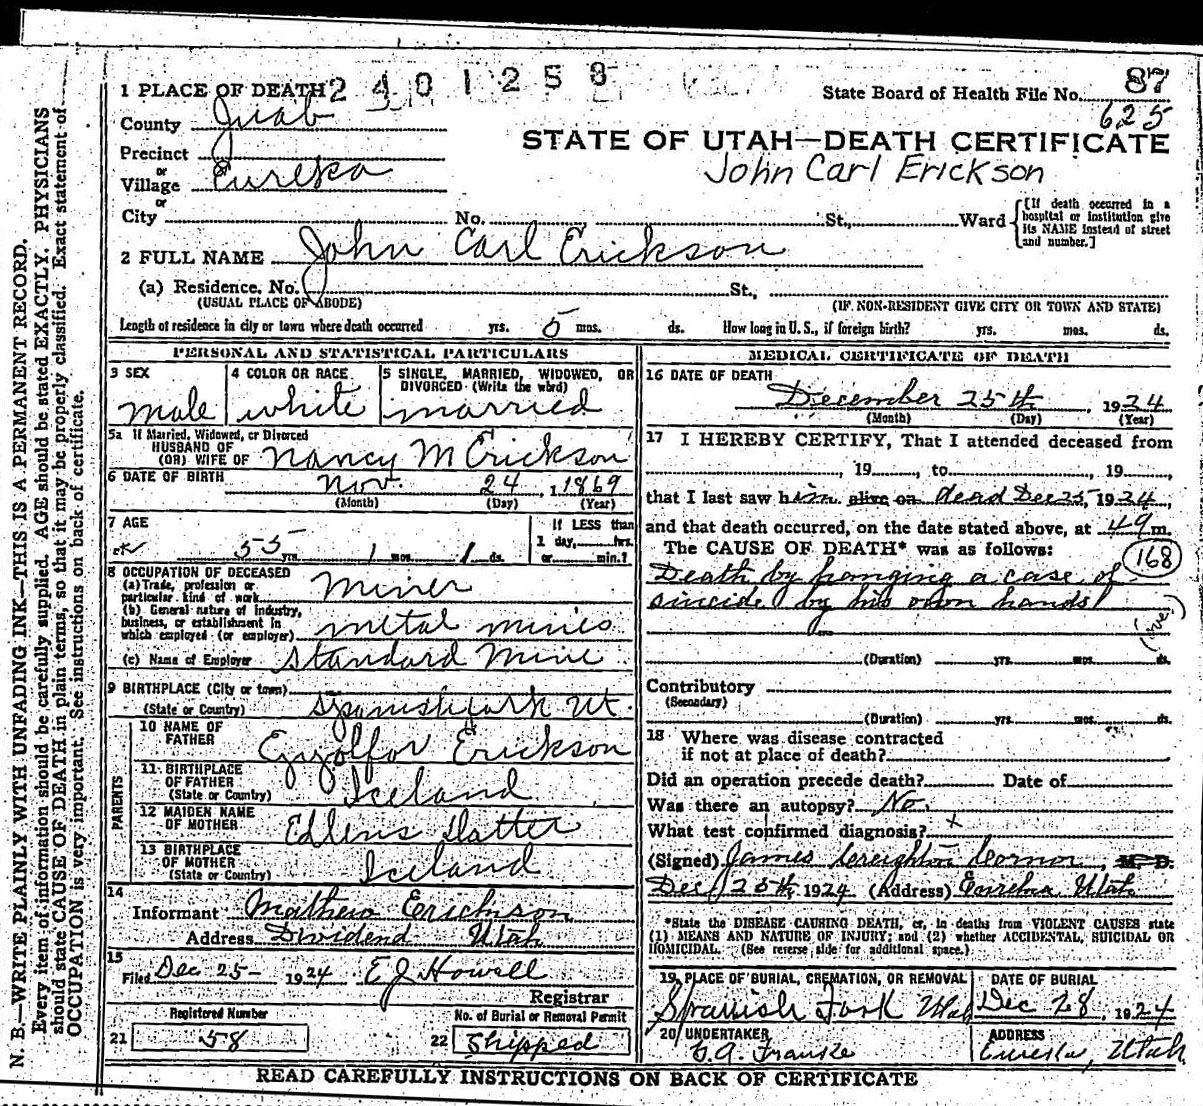 1 PLACE OF DEATH 2401258
State Board of Health File No. 87
625
County Juab
STATE OF UTAH—DEATH CERTIFICATE
John Carl Erickson
Precinct
or
Village Eureka
or
City No. St., Ward
[If death occurred in a
hospital or institution give
its NAME instead of street
and number.]
2 FULL NAME John Carl Erickson
(a) Residence. No. St.,
(USUAL PLACE OF ABODE) (IF NON-RESIDENT GIVE CITY OR TOWN AND STATE)
Length of residence in city or town where death occurred yrs. 5 mos. ds. How long in U. S., if foreign birth? yrs. mos. ds.
PERSONAL AND STATISTICAL PARTICULARS
3 SEX
male
4 COLOR OR RACE
white
5 SINGLE, MARRIED, WIDOWED, OR
DIVORCED (Write the word)
married
5a If Married, Widowed, or Divorced
HUSBAND OF
(OR) WIFE OF Nancy M Erickson
6 DATE OF BIRTH Nov. 24, 1869
(Month) (Day) (Year)
7 AGE
55 yrs. 1 mos. 1 ds.
If LESS than
1 day, hrs.
or min.?
8 OCCUPATION OF DECEASED
(a) Trade, profession or
particular kind of work Miner
(b) General nature of industry,
business, or establishment in
which employed (or employer) metal mines
(c) Name of Employer Standard Mine
9 BIRTHPLACE (City or town)
(State or Country) Spanish fork Ut.
PARENTS
10 NAME OF
FATHER Eyolfor Erickson
11 BIRTHPLACE
OF FATHER
(State or Country) Iceland
12 MAIDEN NAME
OF MOTHER Datter
13 BIRTHPLACE
OF MOTHER
(State or Country) Iceland
14
Informant Mathew Erickson
Address Dividend Utah
15
Filed Dec 25- 1924 E J Howell
Registrar
Registered Number
21 58
No. of Burial or Removal Permit
22 Shipped
MEDICAL CERTIFICATE OF DEATH
16 DATE OF DEATH
December 25th, 1924
(Month) (Day) (Year)
17 I HEREBY CERTIFY, That I attended deceased from
, 19 , to , 19 ,
that I last saw him alive on dead Dec 25, 1924,
and that death occurred, on the date stated above, at m.
The CAUSE OF DEATH* was as follows:
168
Death by hanging a case of
suicide by his own hands
(over)
(Duration) yrs. mos. ds.
Contributory
(Secondary)
(Duration) yrs. mos. ds.
18 Where was disease contracted
if not at place of death?
Did an operation precede death? Date of
Was there an autopsy? No.
What test confirmed diagnosis? x
(Signed) James Creighton Cornor, M. D.
Dec 25th, 1924 (Address) Eureka Utah
*State the DISEASE CAUSING DEATH, or, in deaths from VIOLENT CAUSES state
(1) MEANS AND NATURE OF INJURY; and (2) whether ACCIDENTAL, SUICIDAL OR
HOMICIDAL. (See reverse side for additional space.)
19 PLACE OF BURIAL, CREMATION, OR REMOVAL
Spanish Fork Utah
DATE OF BURIAL
Dec 28, 1924
20 UNDERTAKER
ADDRESS
Eureka, Utah
READ CAREFULLY INSTRUCTIONS ON BACK OF CERTIFICATE
N. B.—WRITE PLAINLY WITH UNFADING INK—THIS IS A PERMANENT RECORD.
Every item of information should be carefully supplied. AGE should be stated EXACTLY. PHYSICIANS
should state CAUSE OF DEATH in plain terms, so that it may be properly classified. Exact statement of
OCCUPATION is very important. See instructions on back of certificate.